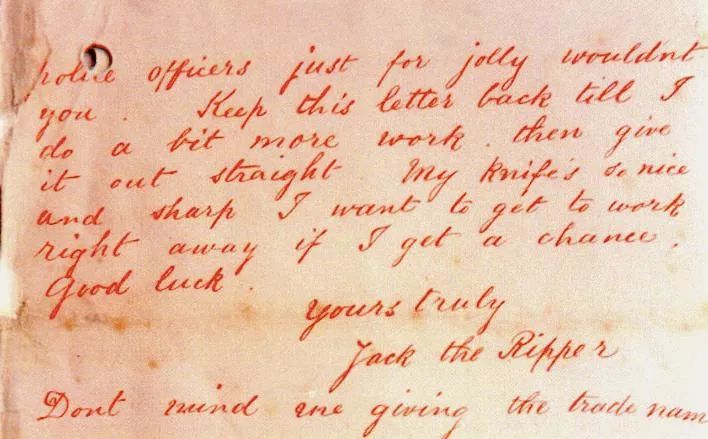 police officers just for jolly wouldnt
you . Keep this letter back till I
do a bit more work . then give
it out straight My knife's so nice
and sharp I want to get to work
right away if I get a chance .
Good luck .
Yours truly
Jack the Ripper
Dont mind me giving the trade nam